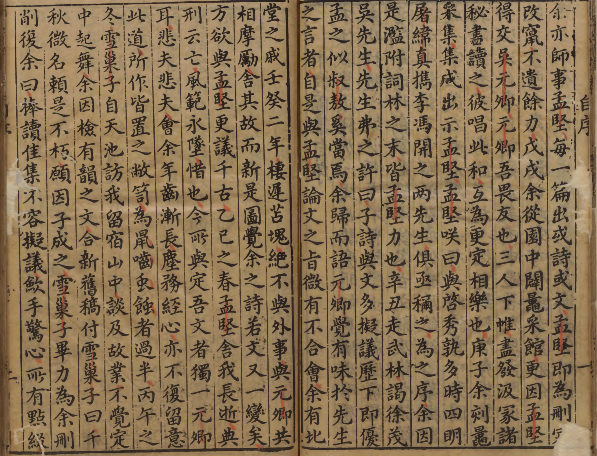 余亦師事孟堅每一篇出或詩或文孟堅即為刪定
改竄不遺餘力戊戌余從園中闢鼂采館更因孟堅
得交吳元卿元卿吾畏友也三人下帷盡發汲冢諸
秘書讀之彼唱此和互為更定相樂也庚子余刻鼂
采集集成出示孟堅孟堅咲曰與啓秀孰多時四明
屠緯真携李馮開之兩先生俱亟稱之為之序余因
是濫附詞林之末皆孟堅力也辛丑走武林謁徐茂
吳先生先生弗之許曰子詩與文多擬議歷下即優
孟之似叔敖奚當焉余歸而語元卿覺有味於先生
之言者自是與孟堅論文之旨微有不合會余有北
堂之戚壬癸二年棲遲苫塊絕不與外事與元卿共
相摩勵舍其故而新是圖覺余之詩若文又一變矣
方欲與孟堅更議千古乙巳之春孟堅舍我長逝典
刑云亡風範永墜惜也今所與定吾文者獨一元卿
耳悲夫悲夫會余年齒漸長塵務經心亦不復留意
此道所作皆置之敝笥為鼠嚙虫蝕者過半丙午之
冬雪巢子自天池訪我留宿山中談及故業不覺定
中起舞余因檢有韻之文合新舊稿付雪巢子曰千
秋微名賴是不朽願因子成之雪巢子畢力為余刪
削復余曰捧讀佳集不容擬議歛手驚心所有點綴
自序